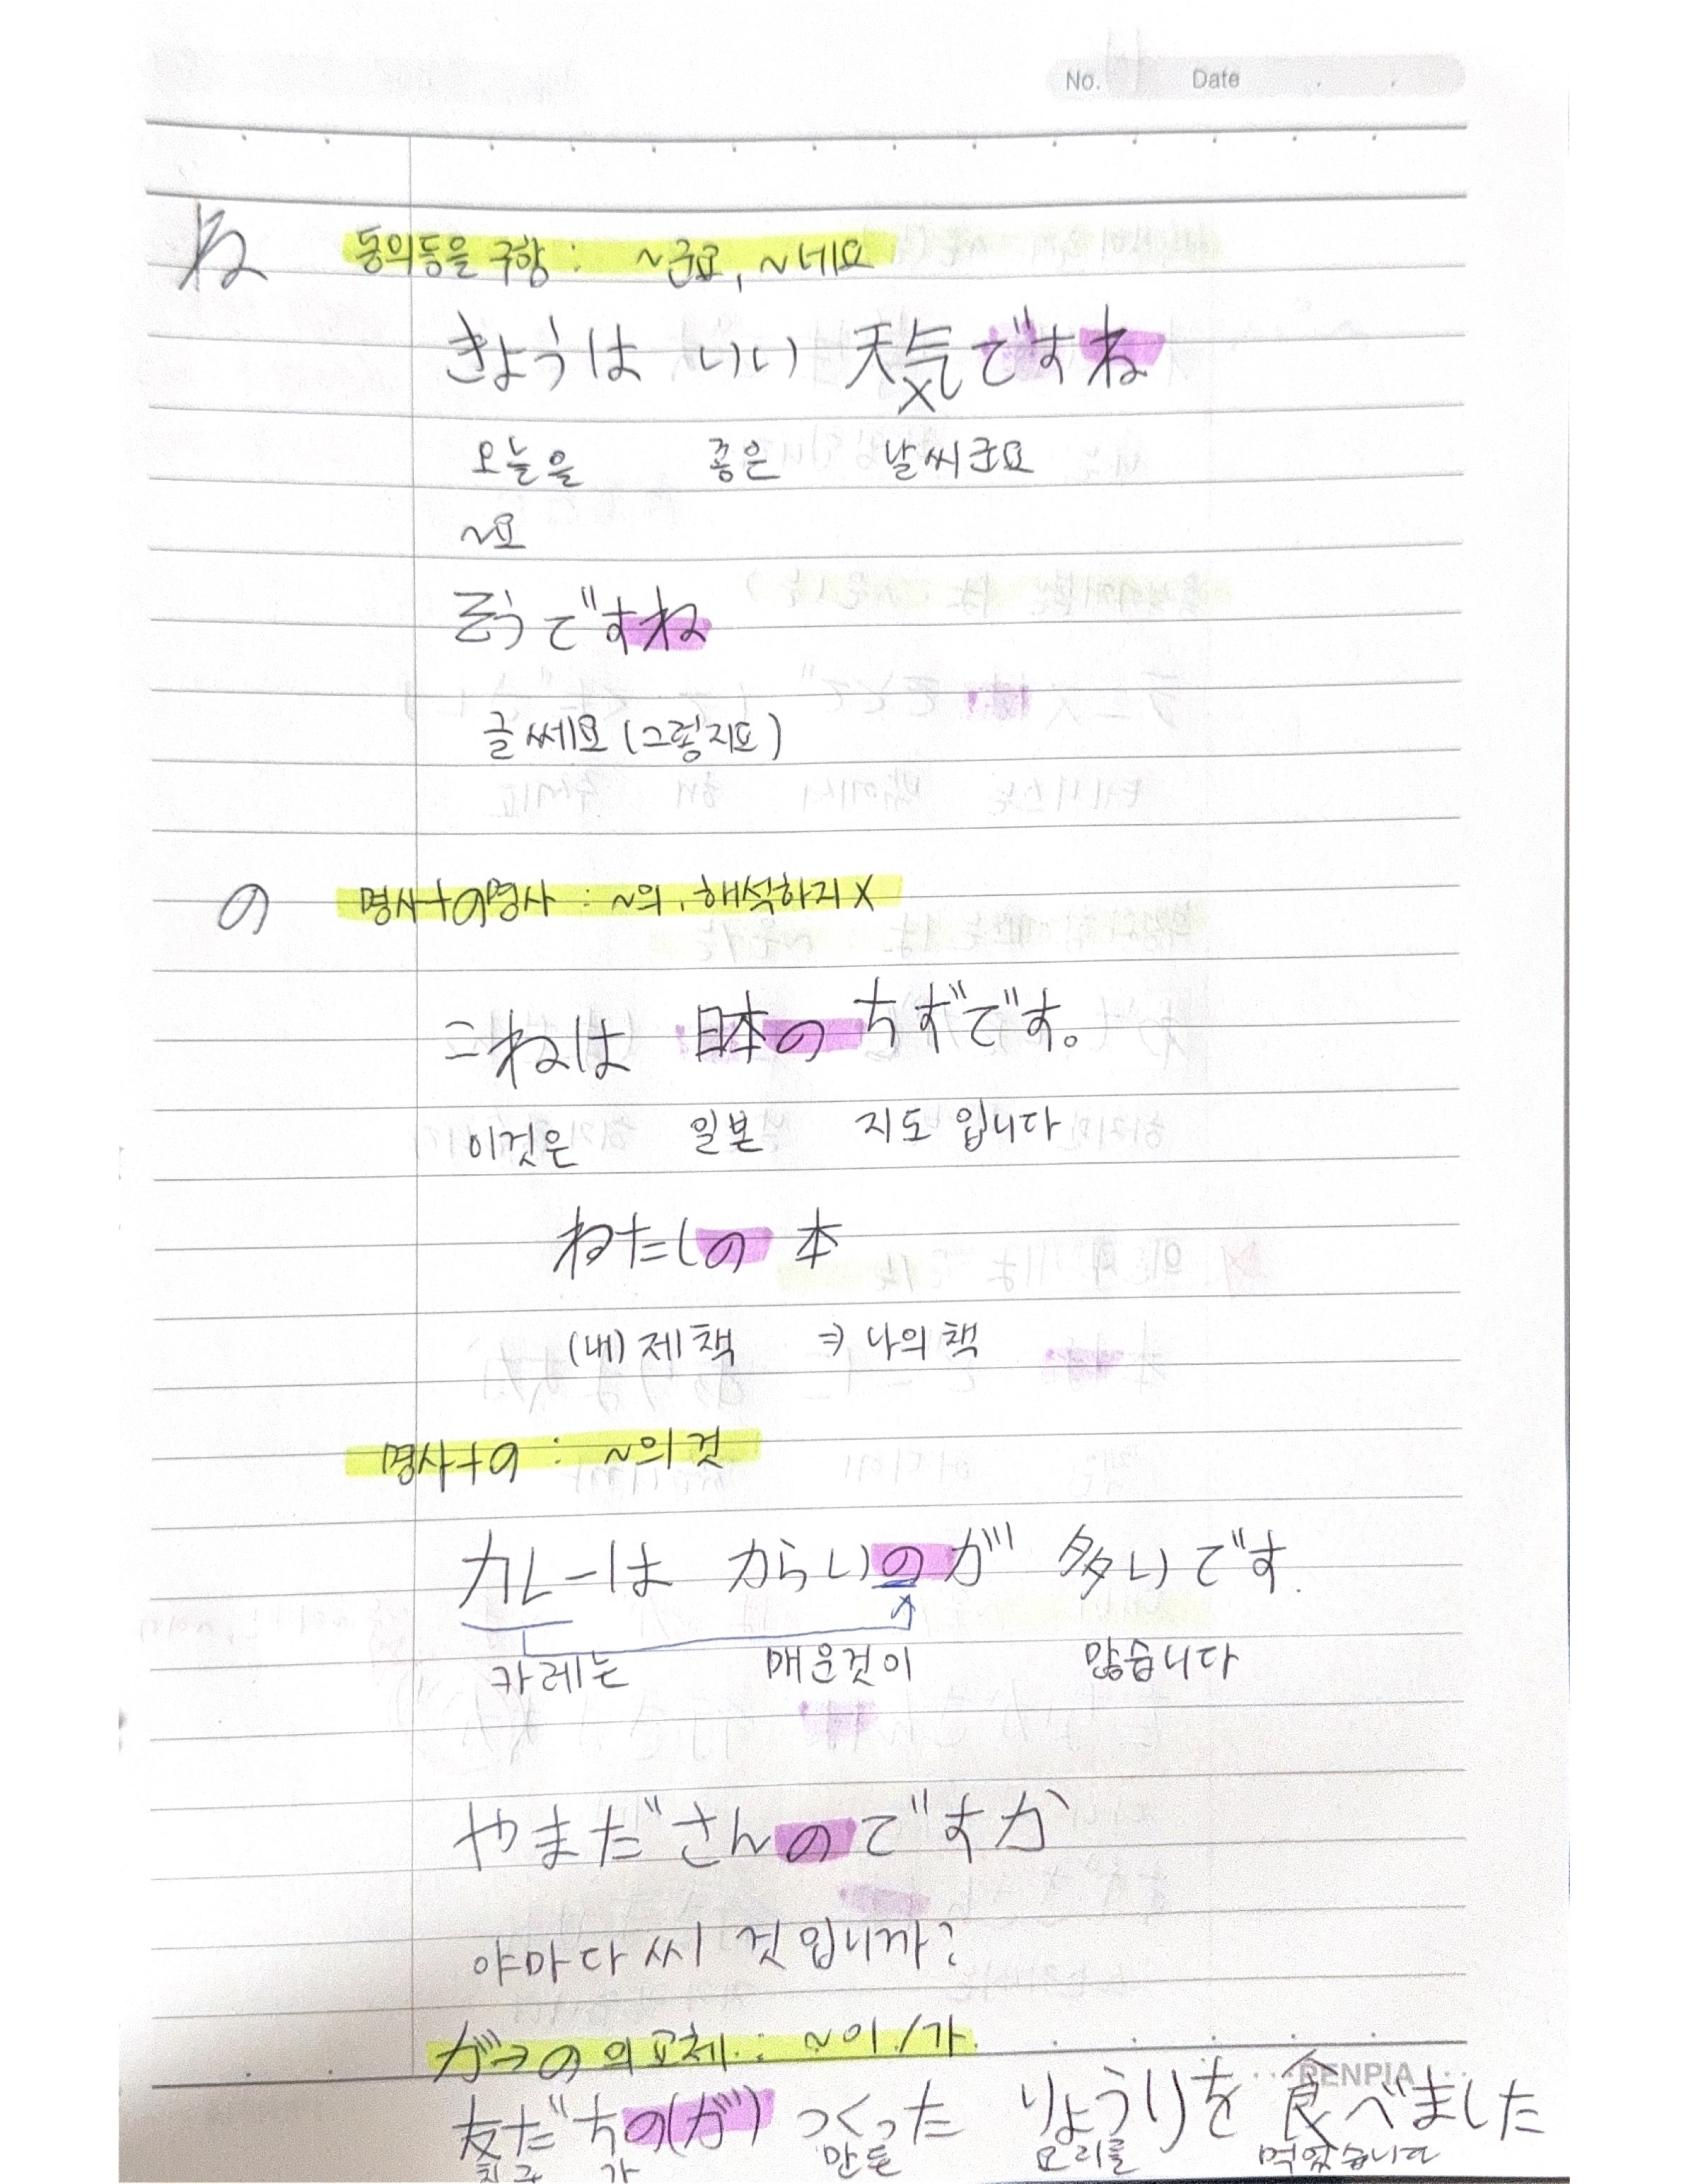 No. Date
ね 동의등을 구함 : ~군요, ~네요
きょうは いい 天気ですね
오늘을 좋은 날씨군요
~요
そうですね
글쎄요 (그렇지요)
の 명사+の명사 : ~의, 해석하지 X
こねは 日本の ちずです。
이것은 일본 지도 입니다
わたしの 本
(내) 제 책 ⇒ 나의 책
명사+の : ~의 것
カレーは からいのが 多いです.
카레는 매운것이 많습니다
やまださんのですか
야마다 씨 것 입니까?
が→の의 교체 : ~이/가
PENPIA
友だちの(が) つくった りょうりを 食べました
친구 가 만든 요리를 먹었습니다